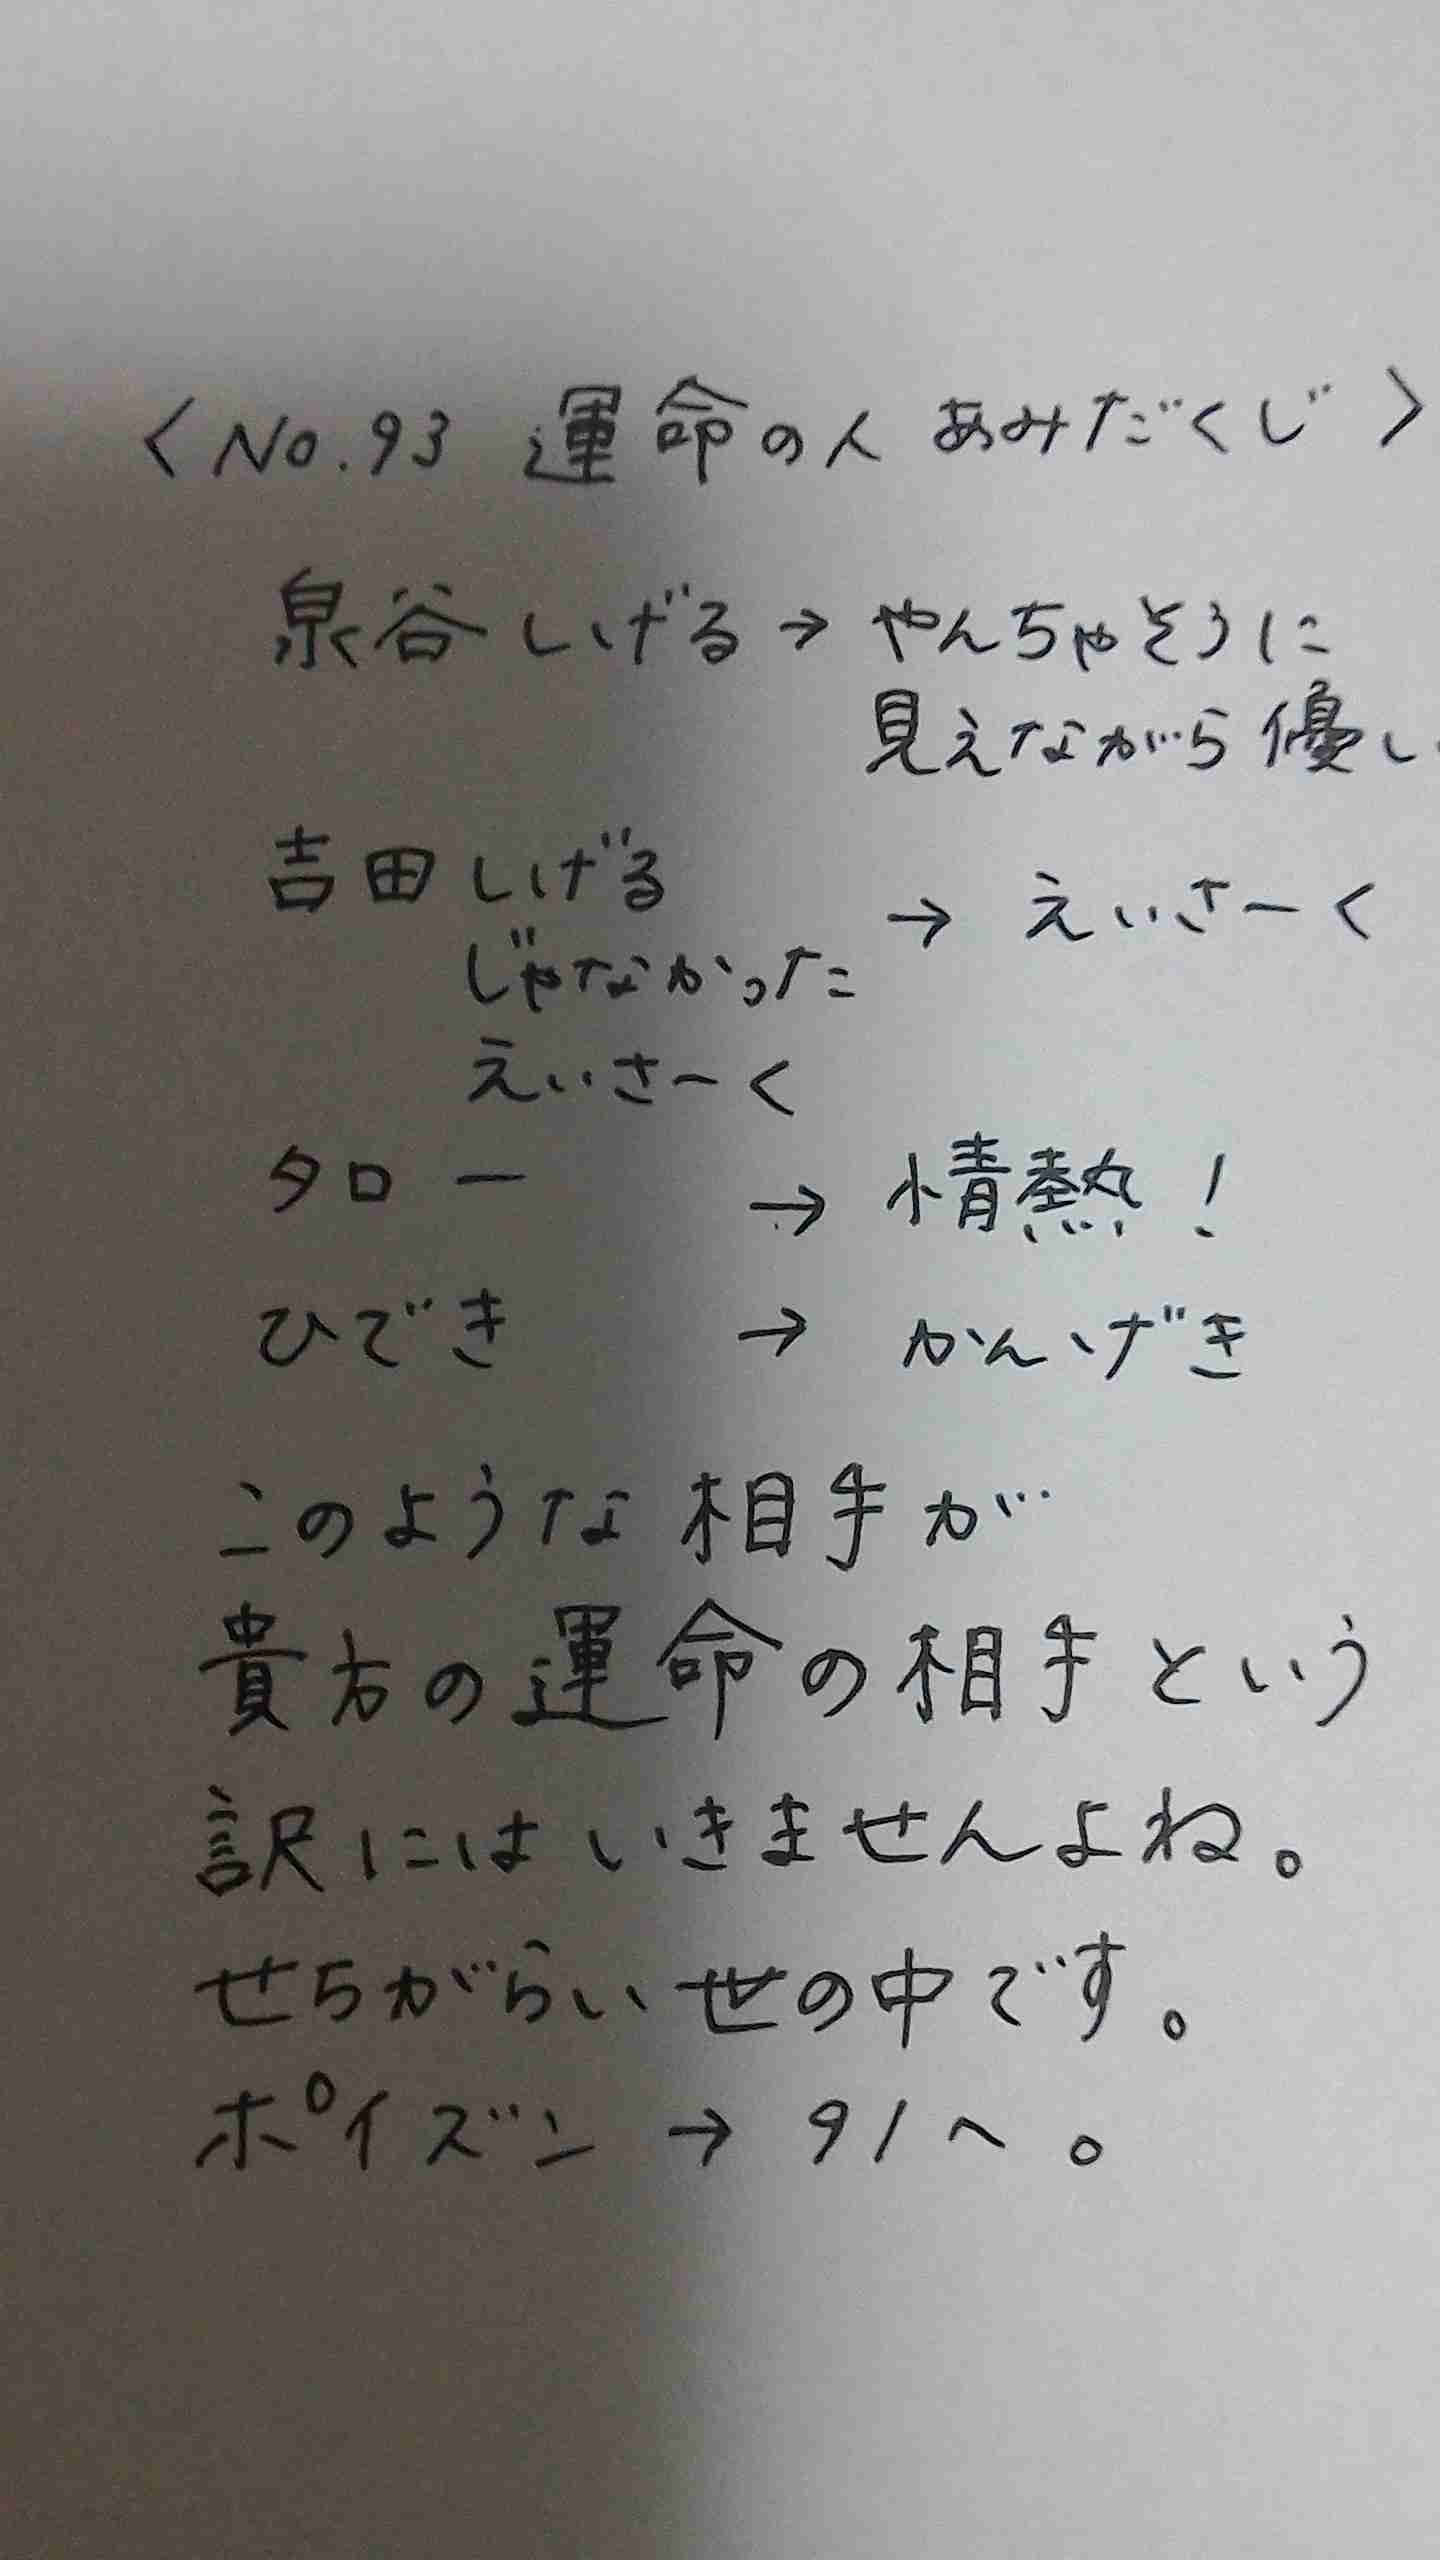 〈No.93 運命の人 あみだくじ〉
泉谷しげる→やんちゃそうに
見えながら優し
吉田しげる
じゃなかった → えいさーく
えいさーく
タロー → 情熱！
ひでき → かんげき
このような相手が
貴方の運命の相手という
訳にはいきませんよね。
せちがらい世の中です。
ポイズン → 91へ。